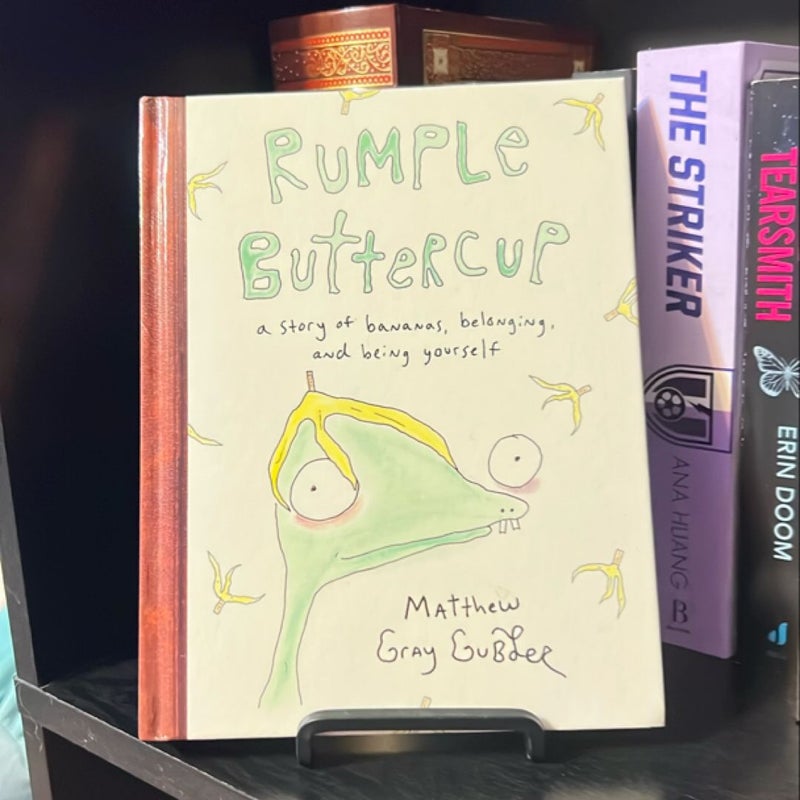 RUMPLE
BUTTERCUP
a story of bananas, belonging,
and being yourself
MATTHEW
GRAY GUBLER
THE STRIKER
ANA HUANG
B
TEARSMITH
ERIN DOOM